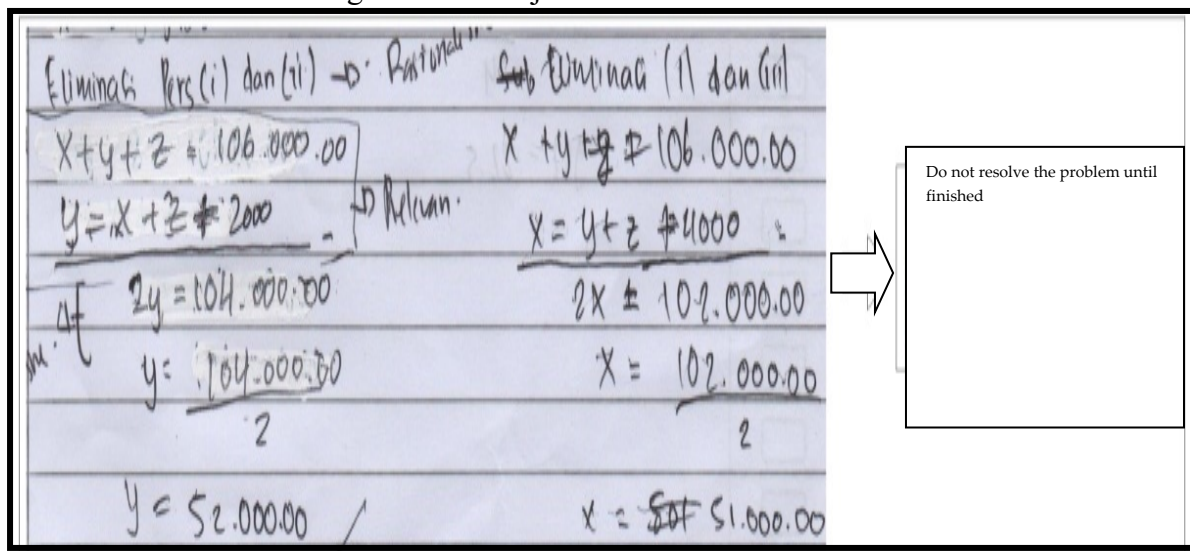 Eliminasi Pers (i) dan (ii) →
x + y + z = 106.000.00
y = x + z + 2000 -
→ Relevan.
2y = 104.000.00
y = 104.000.00
2
y = 52.000.00 /
Eliminasi (i) dan (iii)
x + y + z = 106.000.00
x = y + z + 4000 -
2x = 102.000.00
x = 102.000.00
2
x = 51.000.00
Do not resolve the problem until
finished